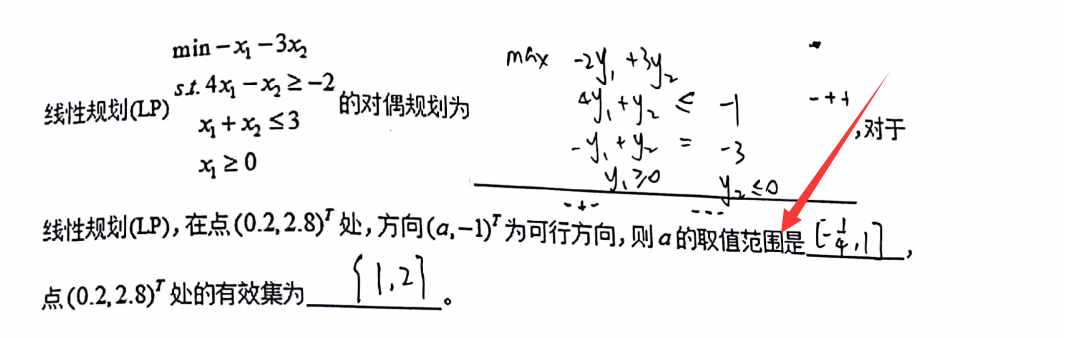 min -x₁ - 3x₂
s.t. 4x₁ - x₂ ≥ -2
线性规划(LP) 的对偶规划为
x₁ + x₂ ≤ 3
x₁ ≥ 0
max -2y₁ + 3y₂
4y₁ + y₂ ≤ -1
-y₁ + y₂ = -3
y₁ ≥ 0 y₂ ≤ 0
-++
,对于
-+- ---
线性规划(LP), 在点(0.2, 2.8)ᵀ处, 方向(a, -1)ᵀ为可行方向, 则a的取值范围是 [-1/4, 1] ,
点(0.2, 2.8)ᵀ处的有效集为 {1,2} 。